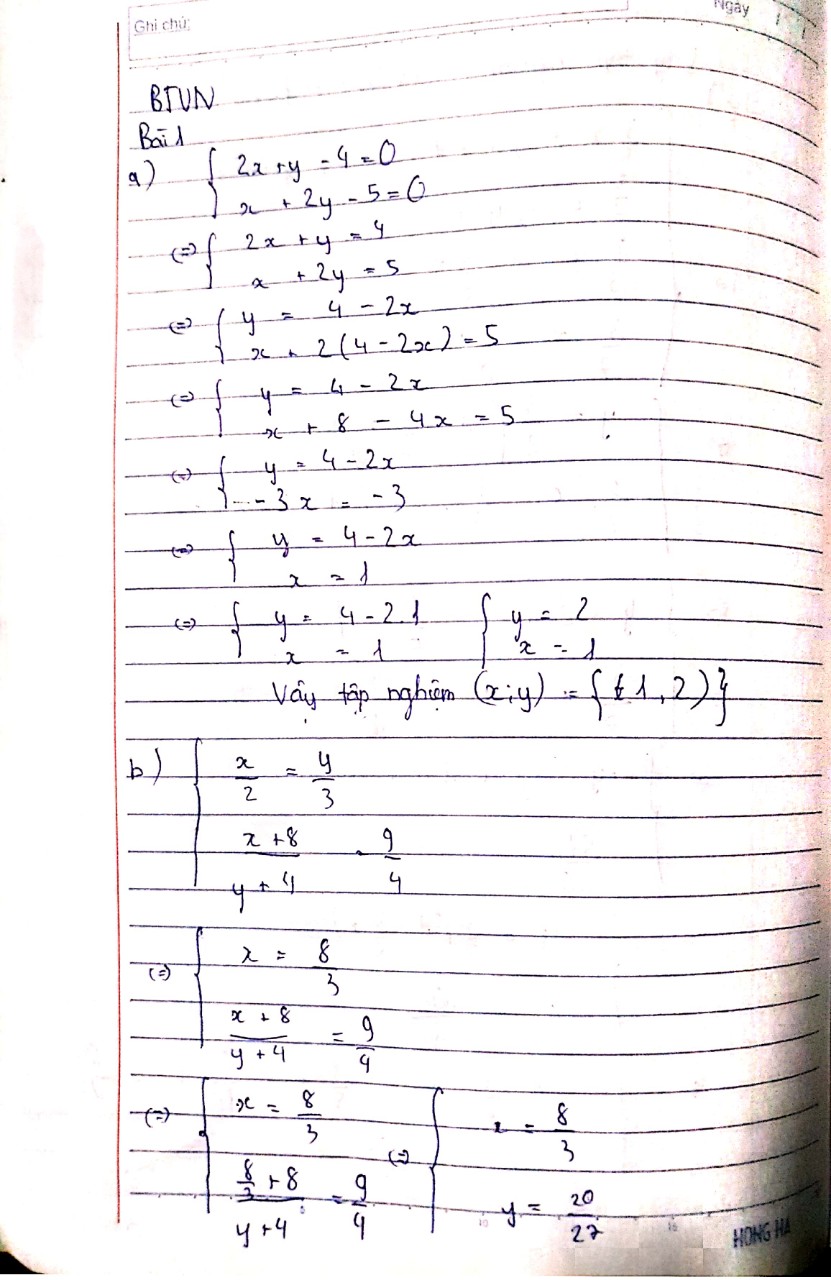 Ghi chú:
Ngày
BTVN
Bài 1
a) { 2x + y - 4 = 0
x + 2y - 5 = 0
(=) { 2x + y = 4
x + 2y = 5
(=) { y = 4 - 2x
x + 2(4 - 2x) = 5
(=) { y = 4 - 2x
x + 8 - 4x = 5
(=) { y = 4 - 2x
-3x = -3
(=) { y = 4 - 2x
x = 1
(=) { y = 4 - 2.1 { y = 2
x = 1 x = 1
Vậy tập nghiệm (x;y) = {(1,2)}
b) { x/2 = y/3
x + 8 / y + 4 = 9/4
(=) { x = 8/3
x + 8 / y + 4 = 9/4
(=) { x = 8/3 (=) { x = 8/3
8/3 + 8 / y + 4 = 9/4 y = 20/27
10 15
HONG HA